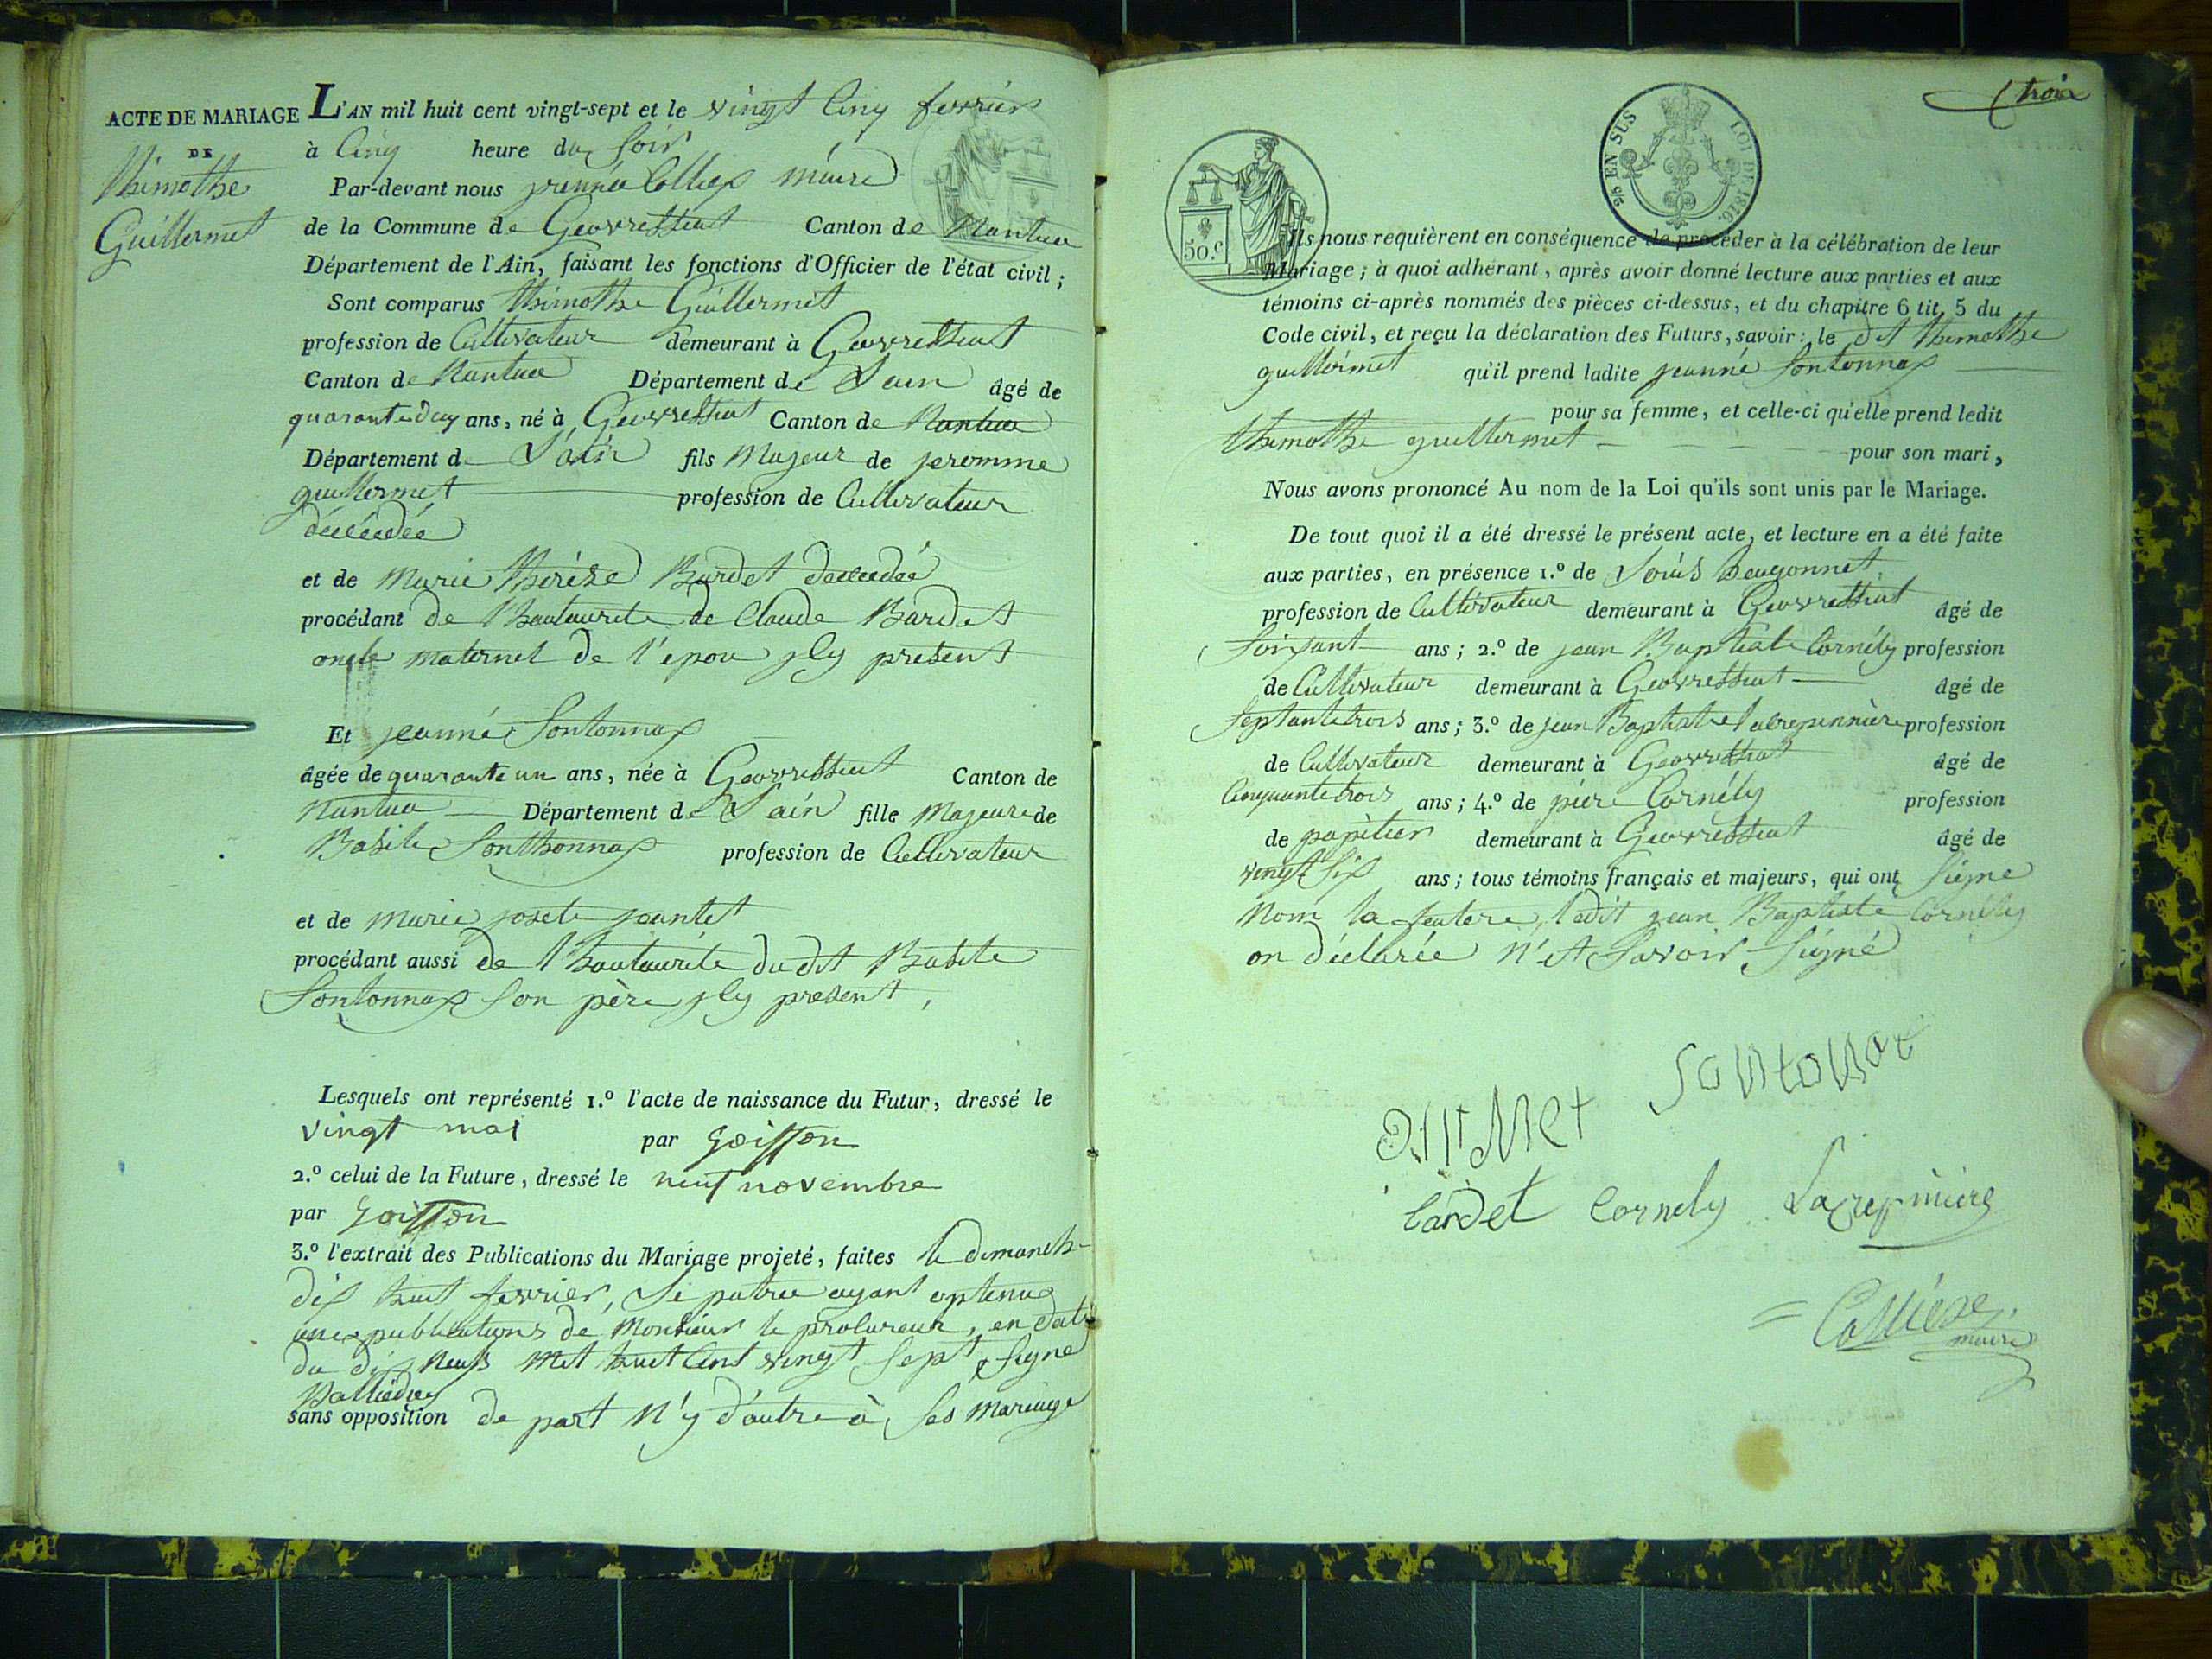 ACTE DE MARIAGE
DE
thimothe
Guillermet
L'AN mil huit cent vingt-sept et le vingt Cinq ferrier
à Cinq heure du Soir
Par-devant nous méire
de la Commune de Geovressiat Canton de Nantua
Département de l'Ain, faisant les fonctions d'Officier de l'état civil;
Sont comparus thimothe Guillermet
profession de Cultivateur demeurant à Geovressiat
Canton de Nantua Département de L'ain âgé de
quarante deuy ans, né à Geovressiat Canton de Nantua
Département de L'ain fils Majeur de jeromme
guillermet profession de Cultivateur
décéedée
et de Marie thérèse Bardet deceedée
procédant de lhautaurite de Claude Bardet
oncle maternel de l'epou jly present
Et jeanné Sontonnax
âgée de quarante un ans, née à Geovressiat Canton de
Nantua Département de L'ain fille Majeure de
Basile Sonthonnax profession de Cultivateur
et de Marie josete jeantet
procédant aussi de lhautaurite du dit Basile
Sontonnax Son père jly present,
Lesquels ont représenté 1.º l'acte de naissance du Futur, dressé le
vingt mai par Goiffon
2.º celui de la Future, dressé le neuf novembre
par Goiffon
3.º l'extrait des Publications du Mariage projeté, faites le dimanch-
dix huit ferrier, ayant optenue
une publications de Monsieur le procureur, en date
du dix neuf Mil huit Cent vingt Sept, Signe
sans opposition de part n'y d'autre à Ses Mariage
troix
50.c
EN SUS LOI DE 1816.
Ils nous requièrent en conséquence de procéder à la célébration de leur
Mariage; à quoi adhérant, après avoir donné lecture aux parties et aux
témoins ci-après nommés des pièces ci-dessus, et du chapitre 6 tit. 5 du
Code civil, et reçu la déclaration des Futurs, savoir: le dit thimothe
guillermet qu'il prend ladite jeanné Sontonnax
pour sa femme, et celle-ci qu'elle prend ledit
thimothe guillermet pour son mari,
Nous avons prononcé Au nom de la Loi qu'ils sont unis par le Mariage.
De tout quoi il a été dressé le présent acte, et lecture en a été faite
aux parties, en présence 1.º de Louis
profession de Cultivateur demeurant à Geovressiat âgé de
Soixant ans; 2.º de jean Baptiste Cornély profession
de Cultivateur demeurant à Geovressiat âgé de
Septante trois ans; 3.º de jean Baptiste profession
de Cultivateur demeurant à Geovressiat âgé de
Cinquante trois ans; 4.º de piére Cornély profession
de papitier demeurant à Geovressiat âgé de
vingt Six ans; tous témoins français et majeurs, qui ont Signe
Nom la feutere, ledit jean Baptiste Cornély
on déclarée n'et Savoir Signé
Sontonax
bardet Cornely Lacrepiniere
maire